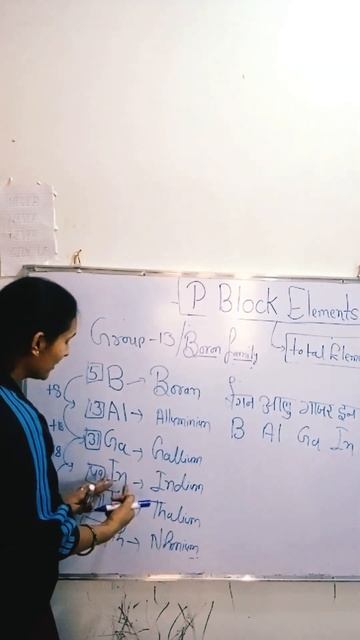 P Block Elements
Group-13/Boron family
total Elem
5 B → Boran
+8
13 Al → Alluminium
+18
31 Ga → Gallium
8
49 In → Indium
Thalium
h → Nhonium
बैंगन आलू गाजर इन
B Al Ga In